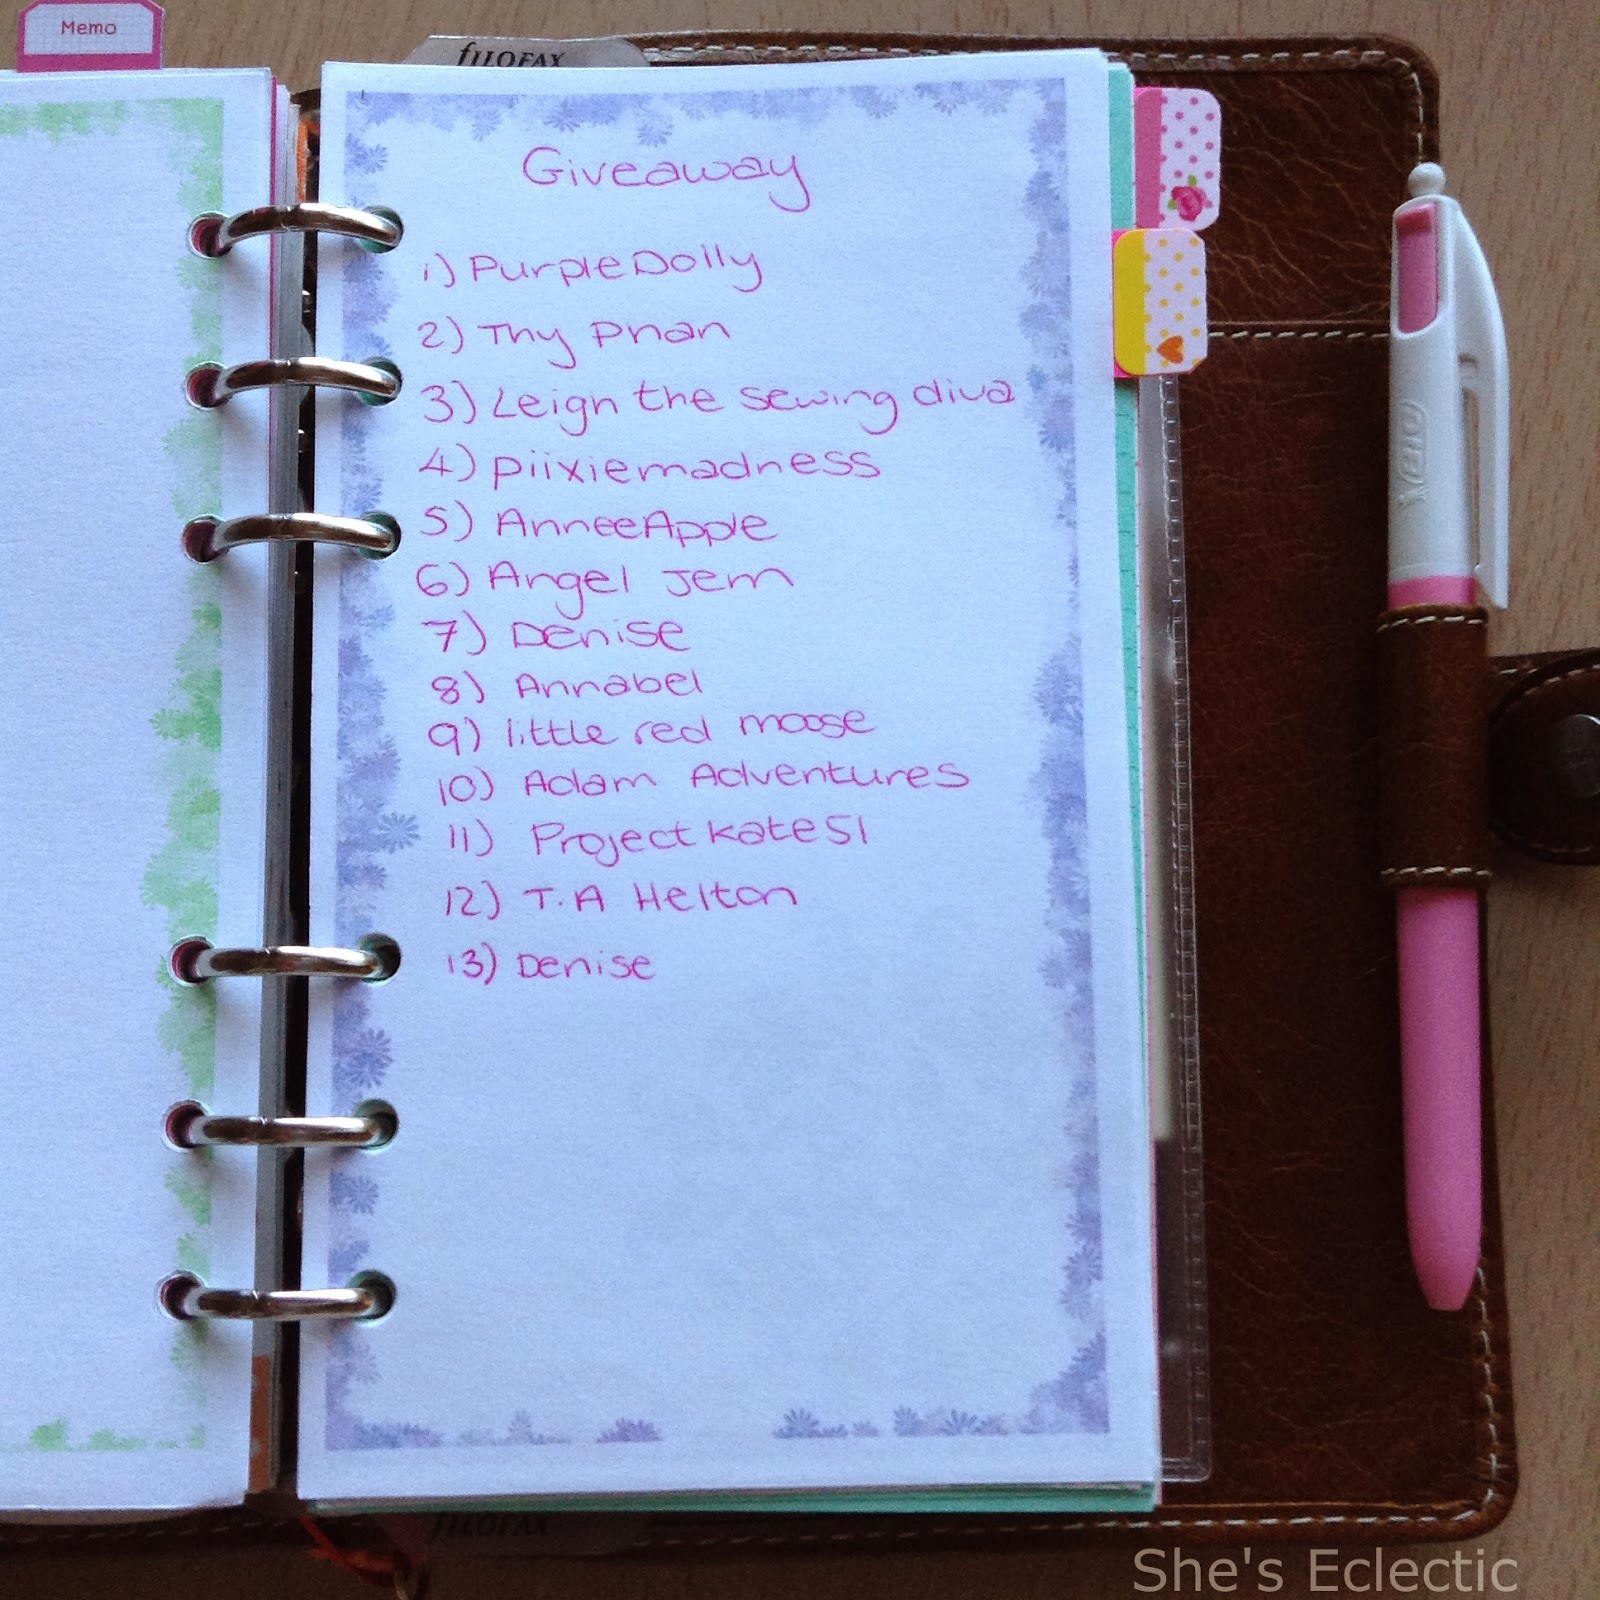 Memo
fILOFAX
Giveaway
1) PurpleDolly
2) Thy Phan
3) Leigh the sewing diva
4) piixiemadness
5) AnneeApple
6) Angel Jem
7) Denise
8) Annabel
9) little red moose
10) Adam Adventures
11) Projectkate51
12) T.A Helton
13) Denise
BIC
fILOFAX
She's Eclectic